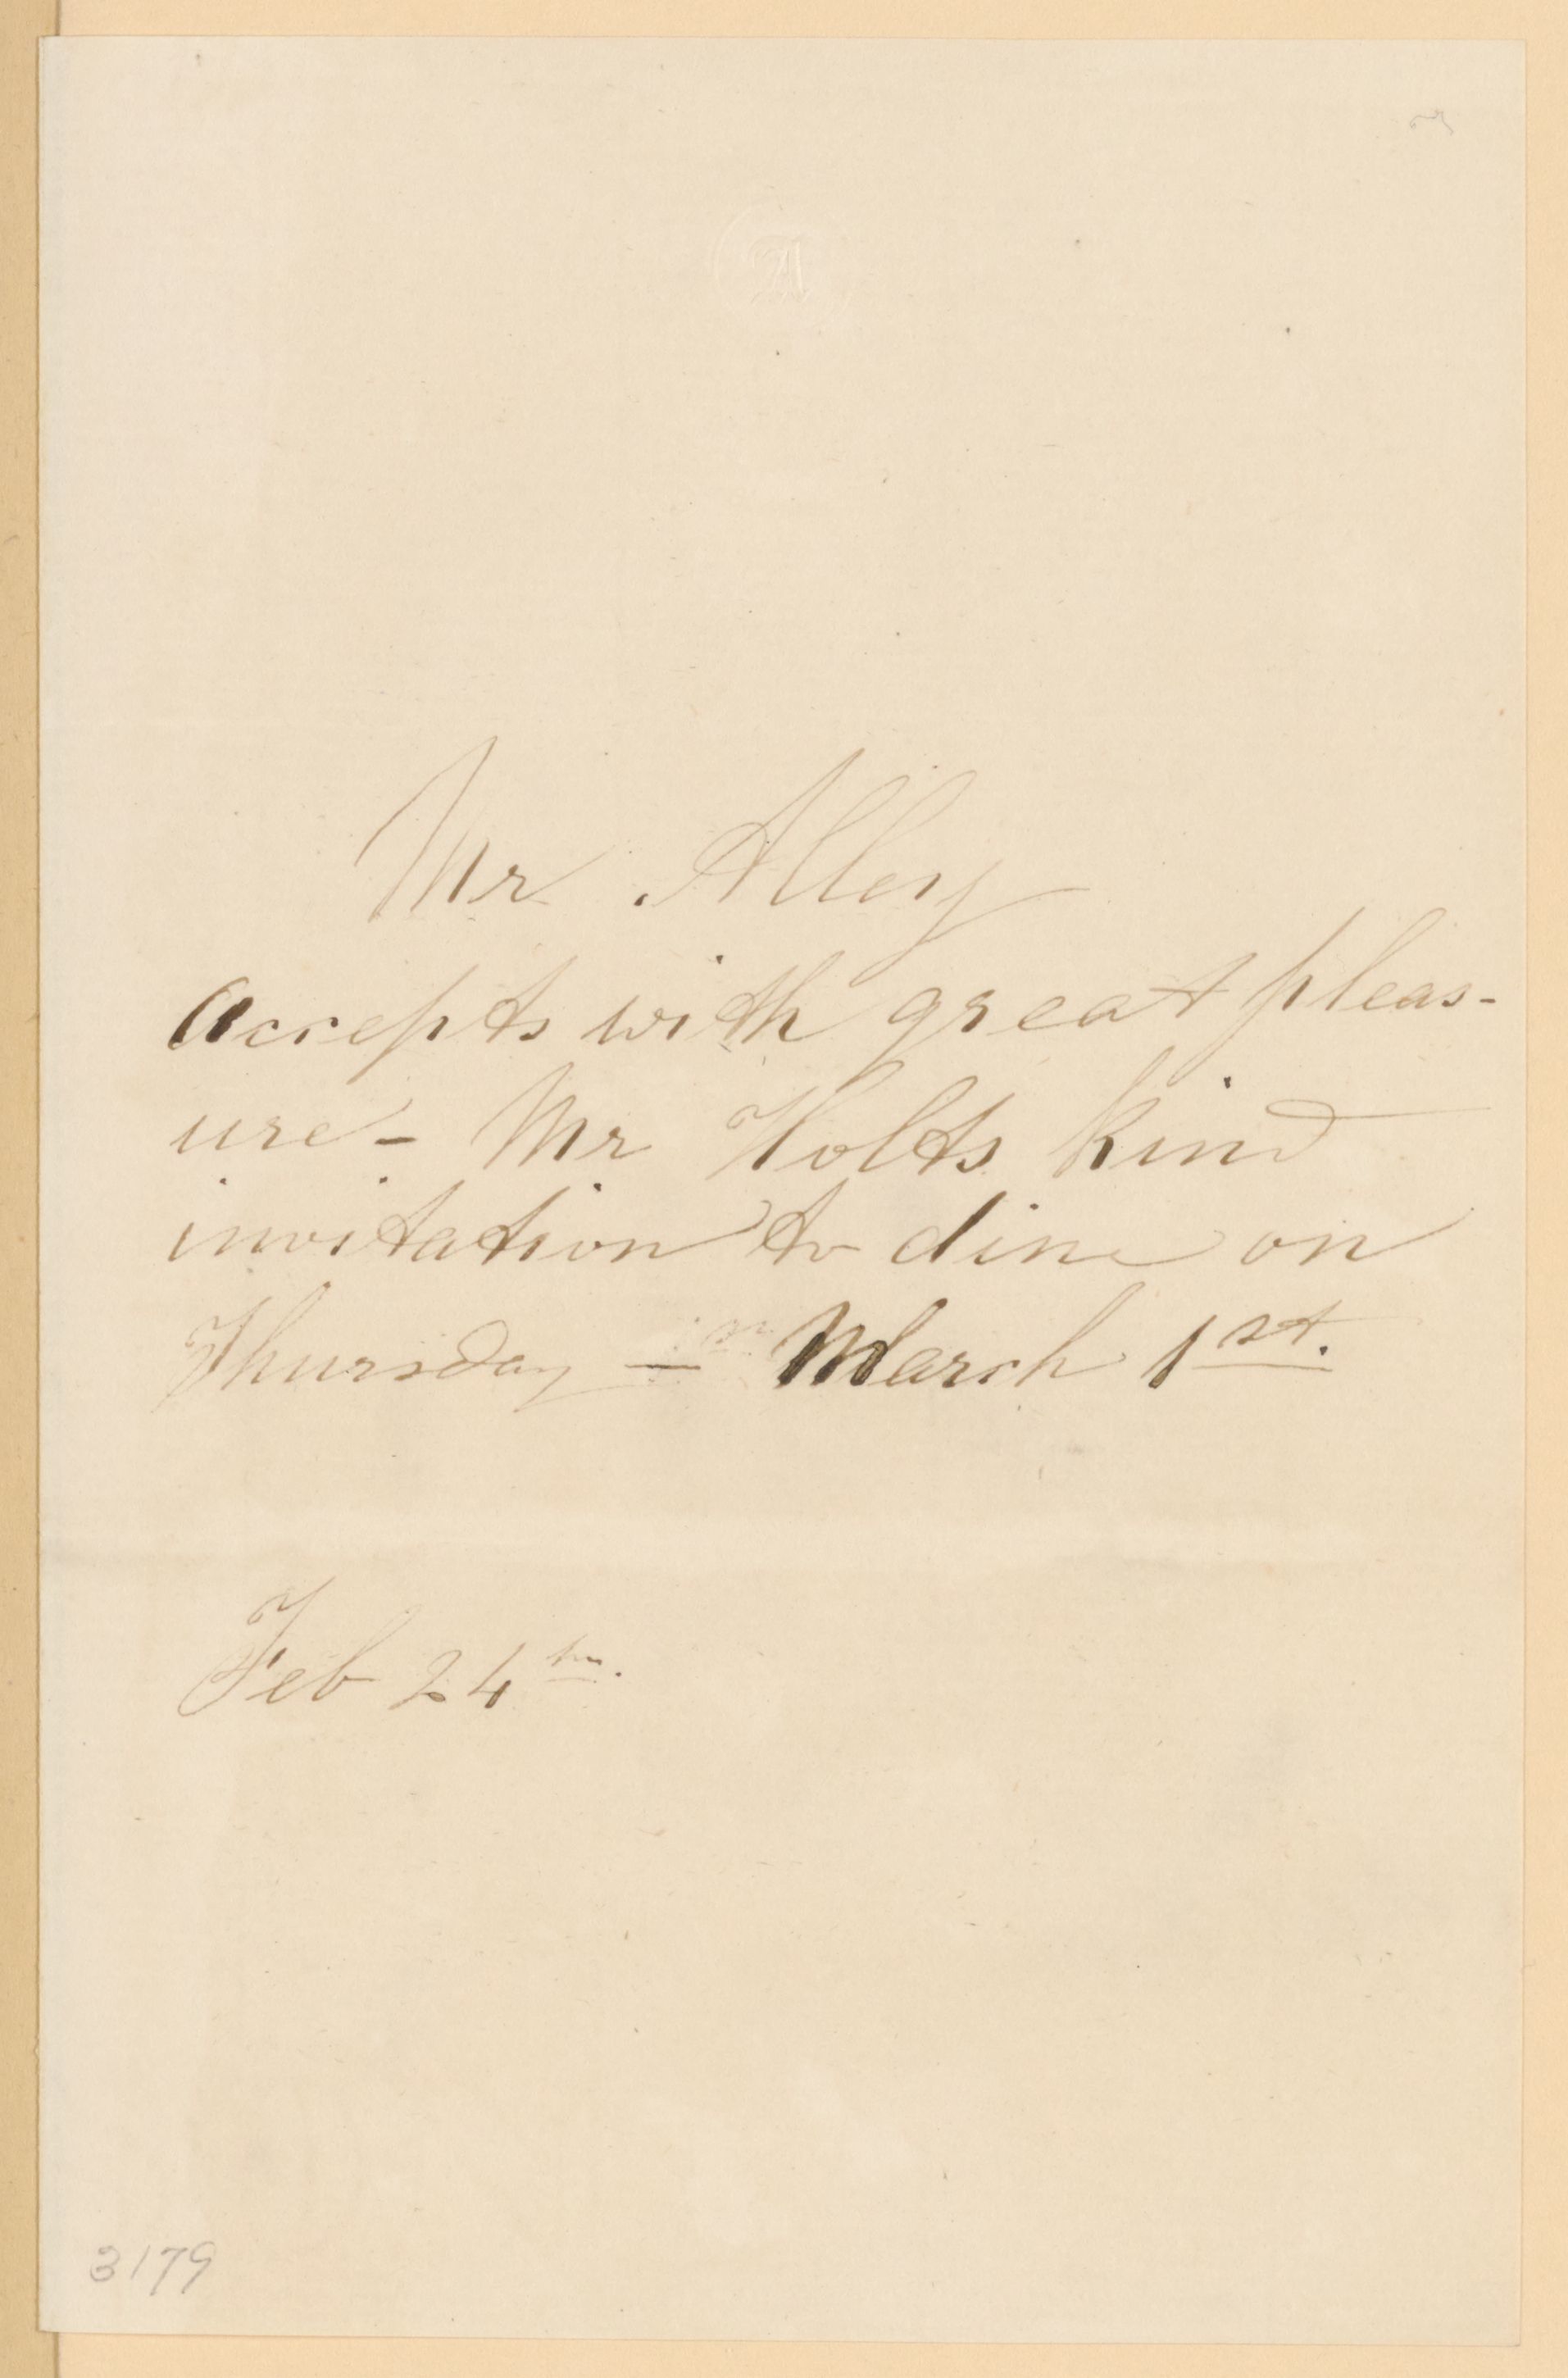 A
Mr. Alley
accepts with great pleas-
ure - Mr Holts kind
invitation to dine on
Thursday - March 1st.
Feb 24th.
3179